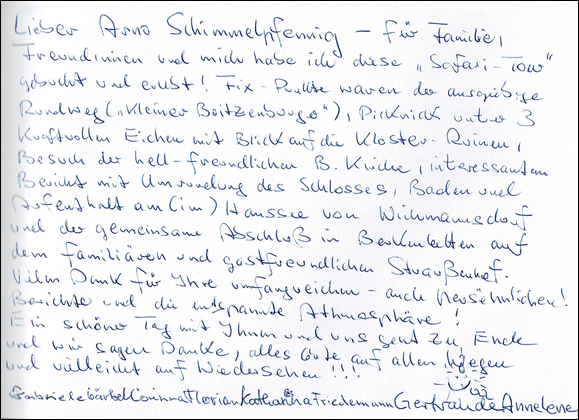 Lieber Arno Schimmelpfennig – für Familie,
Freundinnen und mich habe ich diese „Safari-Tour"
gebucht und erlebt! Fix-Punkte waren der ausgiebige
Rundweg („Kleiner Boitzenburger"), Picknick unter 3
kraftvollen Eichen mit Blick auf die Kloster-Ruinen,
Besuch der hell-freundlichen B. Kirche, interessantem
Bericht mit Umrundung des Schlosses, Baden und
Aufenthalt am (im) Haussee von Wichmannsdorf
und der gemeinsame Abschluß in Berkenlatten auf
dem familiären und gastfreundlichen Straußenhof.
Vielen Dank für Ihre umfangreichen – auch persöhnlichen!
Berichte und die entspannte Athmosphäre!
Ein schöner Tag mit Ihnen und uns geht zu Ende
und wir sagen Danke, alles Gute auf allen Wegen
und vielleicht auf Wiedersehen !!!
Gabriele Bärbel Corinna Florian Katharina Friedemann Gertraude Annelene